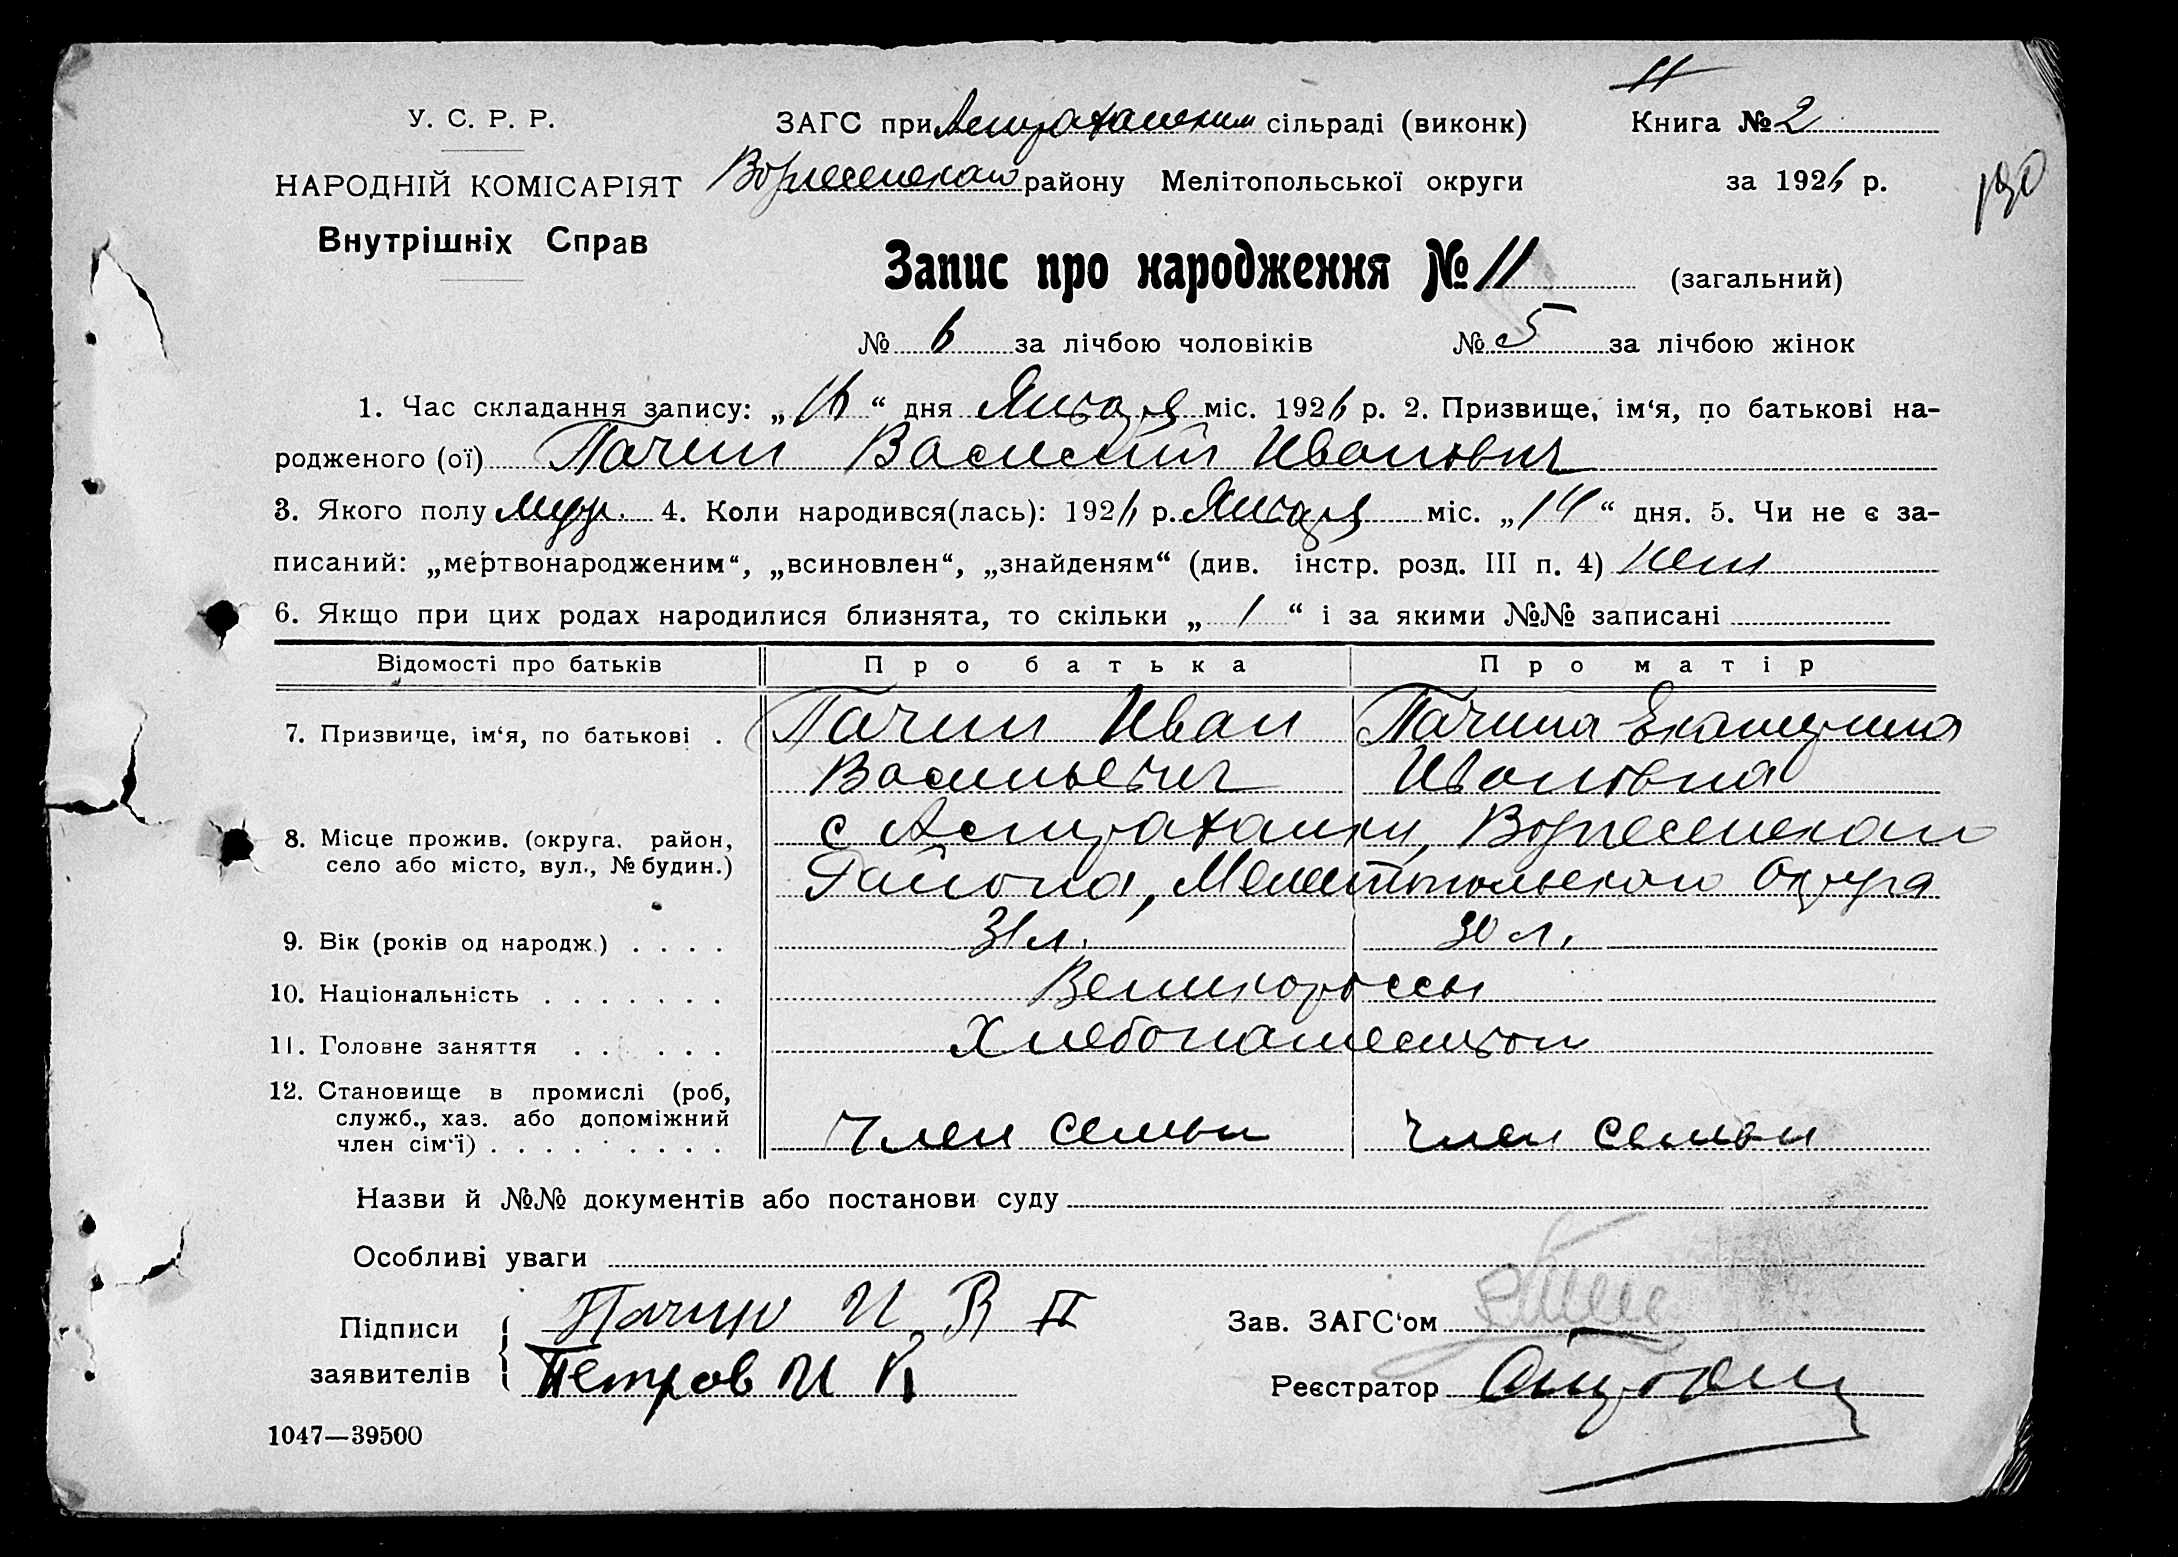 11
У. С. Р. Р.
ЗАГС при Астраханским сільраді (виконк)
Книга № 2
НАРОДНІЙ КОМІСАРІЯТ
Вознесенского району Мелітопольської округи
за 1926 р.
190
Внутрішніх Справ
Запис про народження № 11 (загальний)
№ 6 за лічбою чоловіків № 5 за лічбою жінок
1. Час складання запису: „16“ дня Января міс. 1926 р. 2. Призвище, ім‘я, по батькові на-
родженого (ої) Пачин Василий Иванович
3. Якого полу муж. 4. Коли народився(лась): 1926 р. Января міс. „14“ дня. 5. Чи не є за-
писаний: „мертвонародженим“, „всиновлен“, „знайденям“ (див. інстр. розд. III п. 4) нет
6. Якщо при цих родах народилися близнята, то скільки „1“ і за якими №№ записані
Відомості про батьків Про батька Про матір
7. Призвище, ім‘я, по батькові . Пачин Иван Пачина Екатерина
Васильевич Ивановна
8. Місце прожив. (округа, район, с Астраханки, Вознесенского
село або місто, вул., № будин.) Района, Мелитопольского Округа
9. Вік (років од народж.) . . . . 31 л. 30 л.
10. Національність . . . . . . . Великороссы
11. Головне заняття . . . . . . Хлебопашеством
12. Становище в промислі (роб,
служб., хаз. або допоміжний
член сім‘ї) . . . . . . . . Член семьи член семьи
Назви й №№ документів або постанови суду
Особливі уваги
Підписи Пачин И В П
Зав. ЗАГС‘ом
заявителів Петров И
Реєстратор
1047—39500